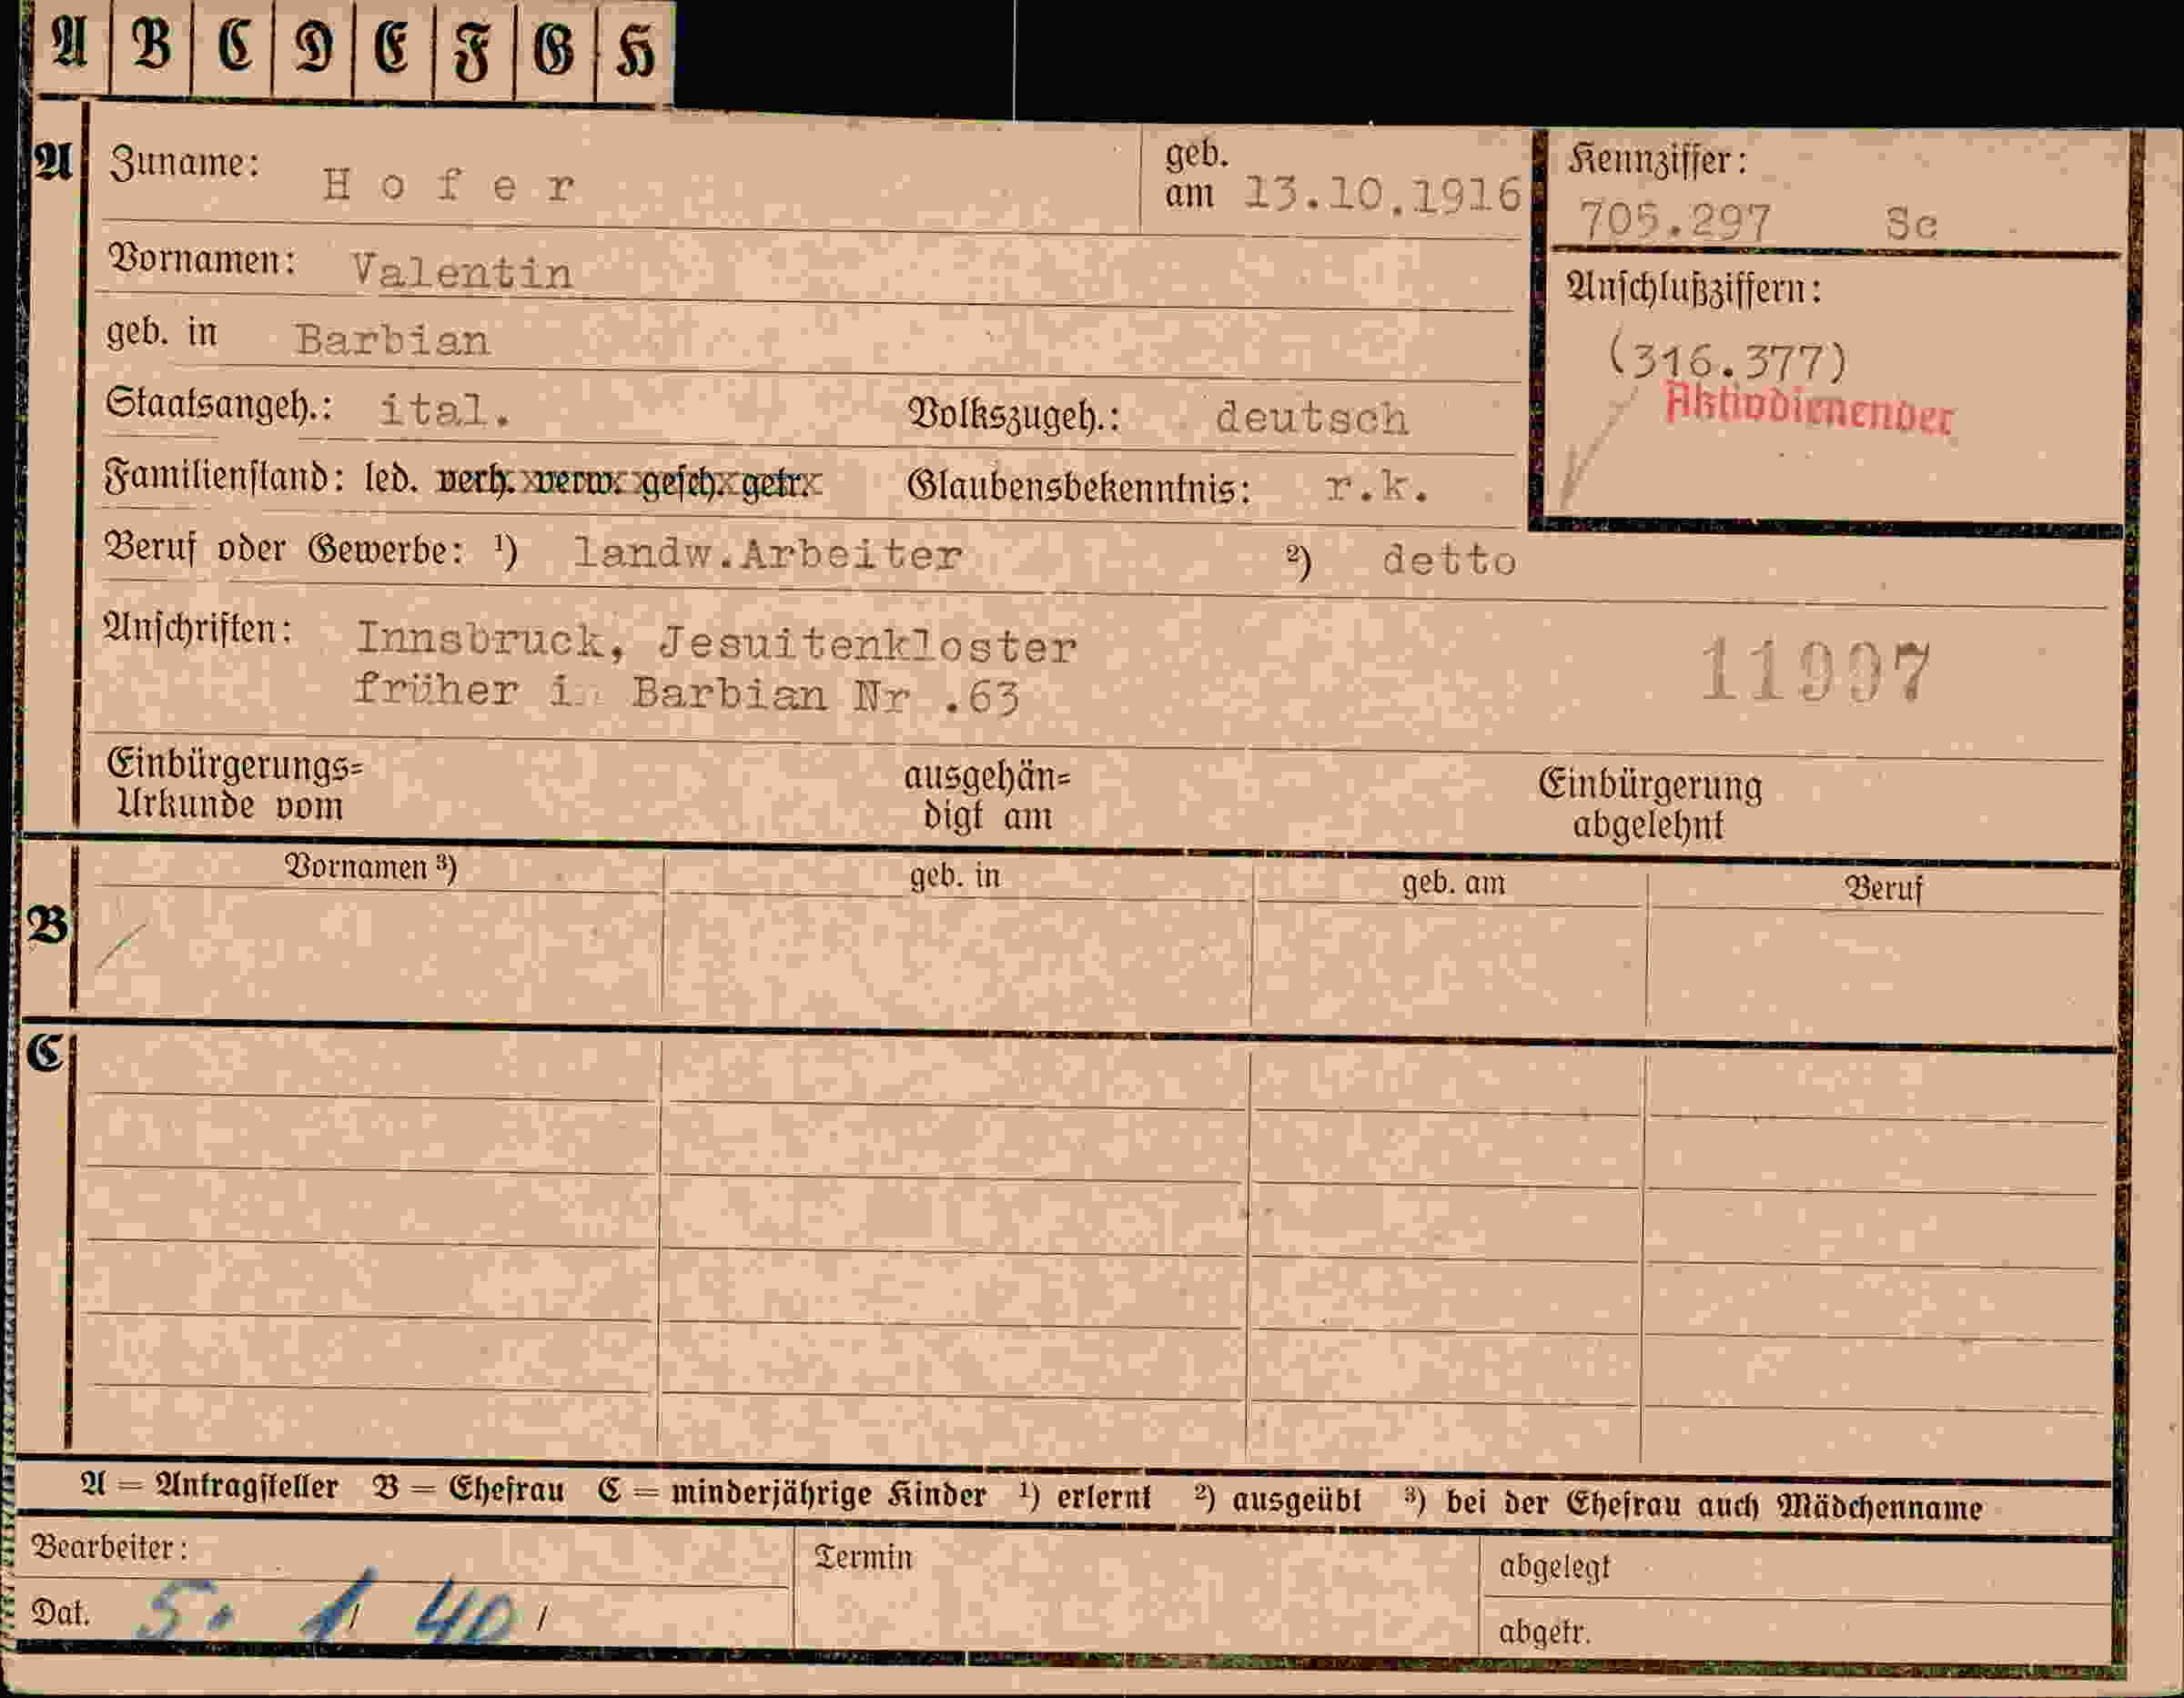 A B C D E F G H
A Zuname: Hofer geb. am 13.10.1916 Kennziffer:
705.297 Sc
Vornamen: Valentin
Anschlußziffern:
geb. in Barbian
(316.377)
Aktivdienender
Staatsangeh.: ital. Volkszugeh.: deutsch
Familienstand: led. verh. verw. gesch. getr. Glaubensbekenntnis: r.k.
Beruf oder Gewerbe: ¹) landw.Arbeiter ²) detto
Anschriften: Innsbruck, Jesuitenkloster
früher i Barbian Nr .63
11997
Einbürgerungs=
Urkunde vom
ausgehän=
digt am
Einbürgerung
abgelehnt
B Vornamen ³) geb. in geb. am Beruf
C
A = Antragsteller B = Ehefrau C = minderjährige Kinder ¹) erlernt ²) ausgeübt ³) bei der Ehefrau auch Mädchenname
Bearbeiter: Termin abgelegt
Dat. 5. 1/ 40 / abgetr.